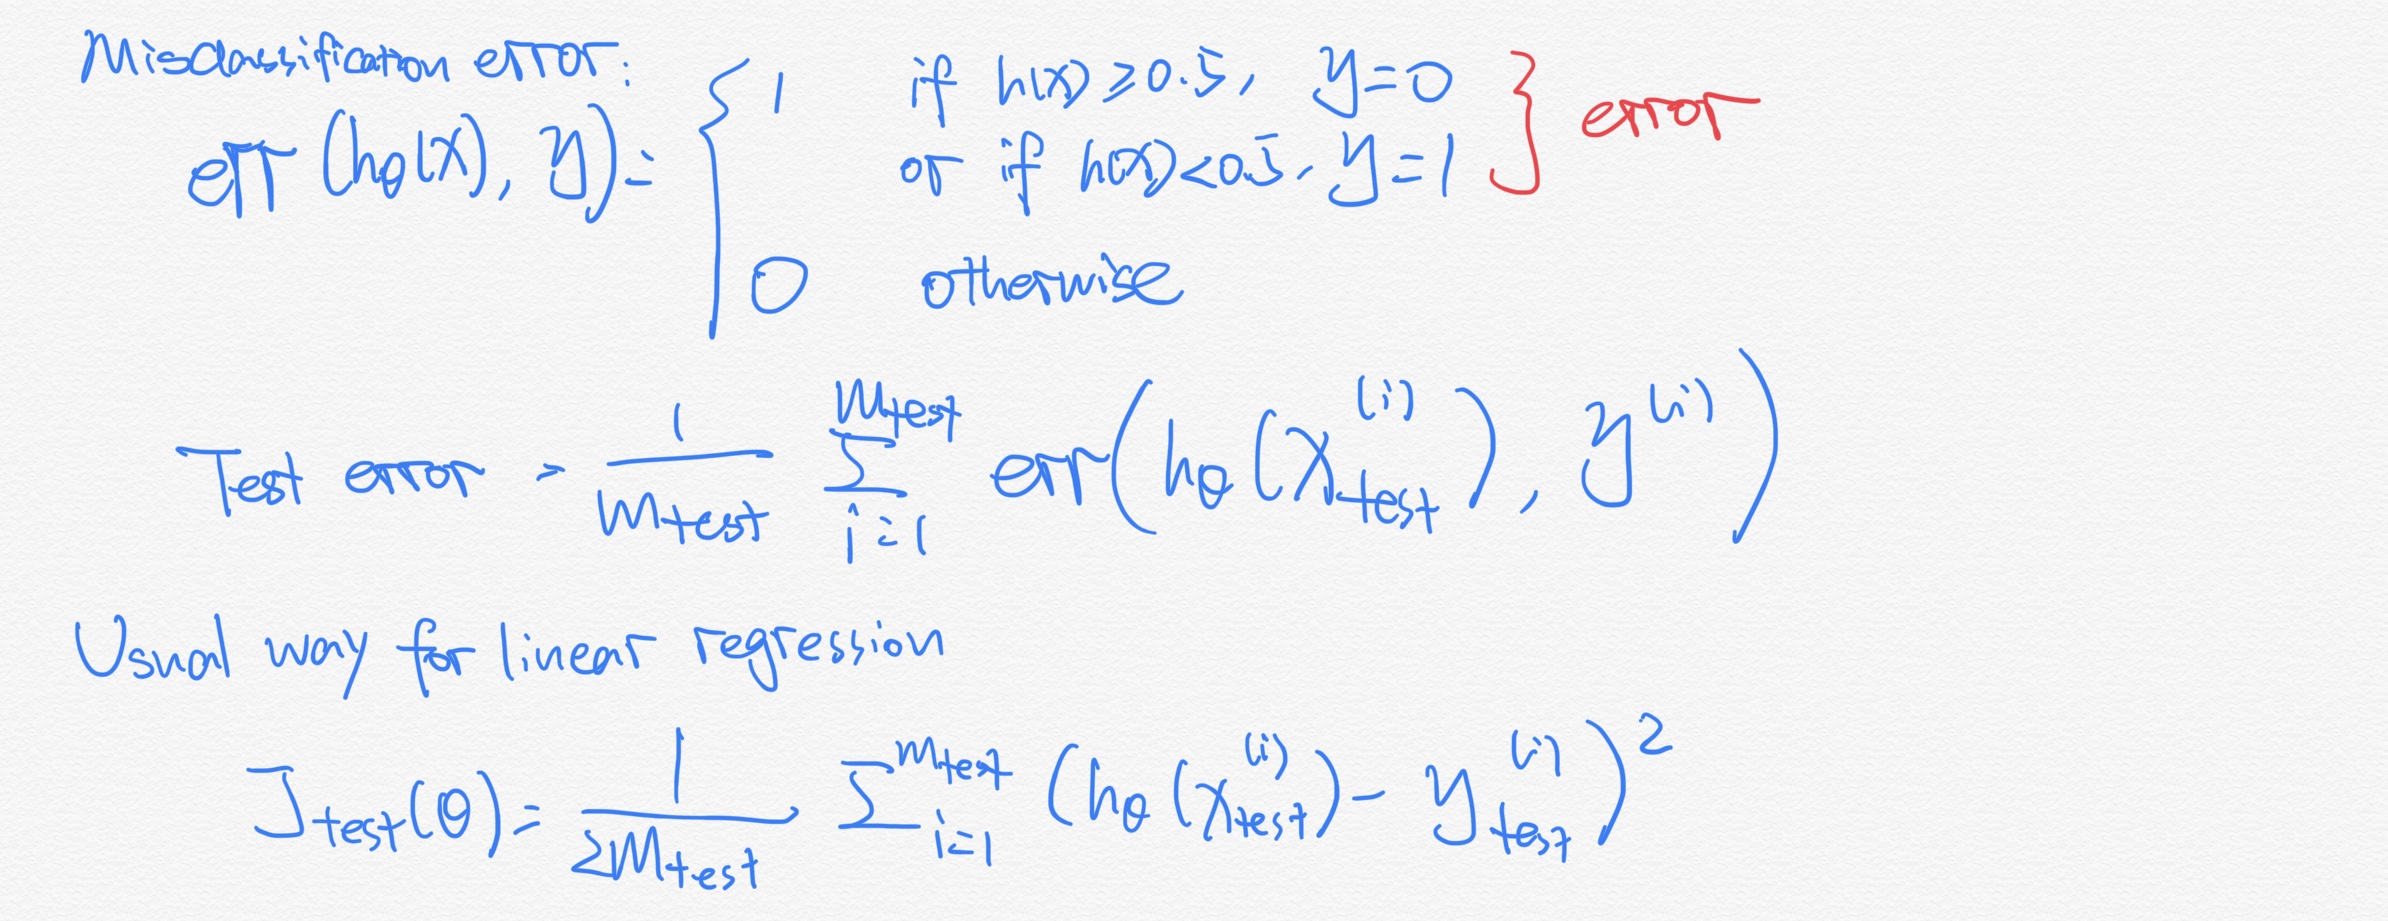 Misclassification error:
err (hθ(x), y) = { 1 if h(x) ≥ 0.5, y = 0 } error
or if h(x) < 0.5, y = 1
0 otherwise
Test error = 1/m_test Σ_{i=1}^{m_test} err(hθ(x_test^(i)), y^(i))
Usual way for linear regression
J_test(θ) = 1/2m_test Σ_{i=1}^{m_test} (hθ(x_test^(i)) - y_test^(i))^2